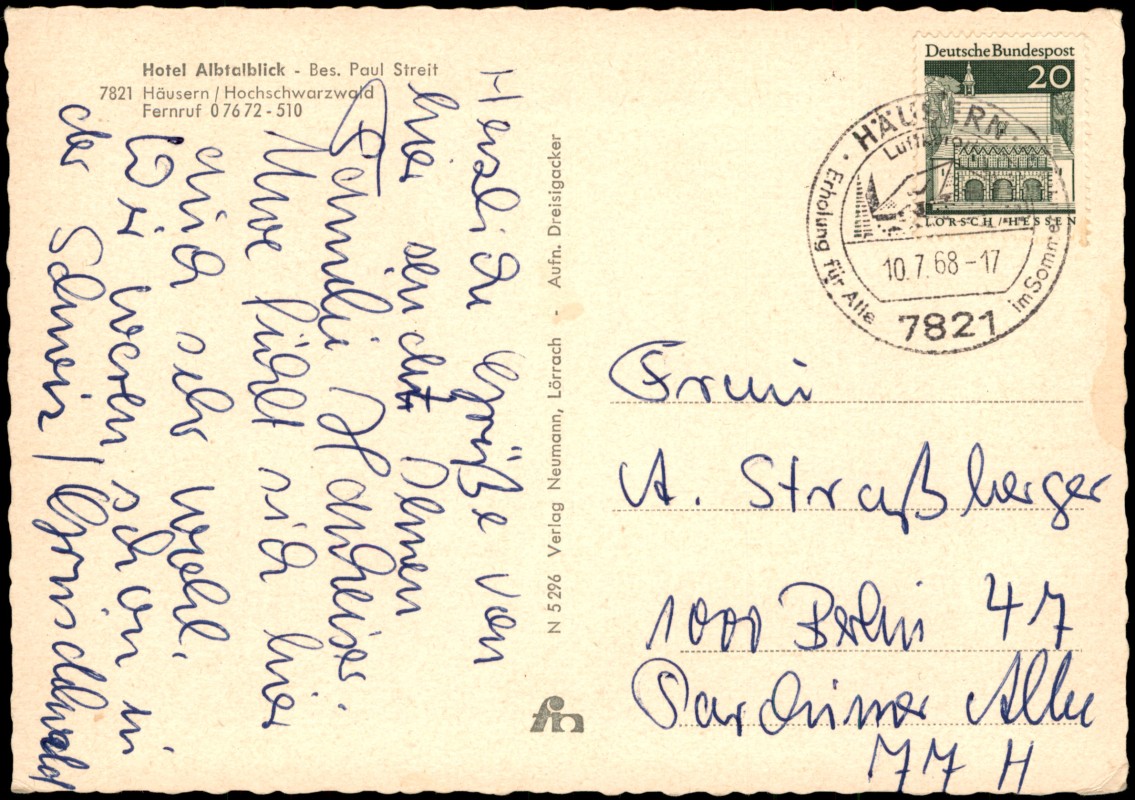 Hotel Albtalblick - Bes. Paul Streit
7821 Häusern / Hochschwarzwald
Fernruf 07672-510
Herzliche Grüße von
hier sendet Ihnen
Familie
Uwe fühlt sich hier
auch sehr wohl.
Wir waren schon in
der Schweiz / Grindelwald
N 5296 Verlag Neumann, Lörrach - Aufn. Dreisigacker
Deutsche Bundespost
20
LORSCH/HESSEN
HÄUSERN
Erholung für Alle
im Sommer
10.7.68-17
7821
Frau
A. Straßberger
1000 Berlin 47
Parchimer Allee
77 H